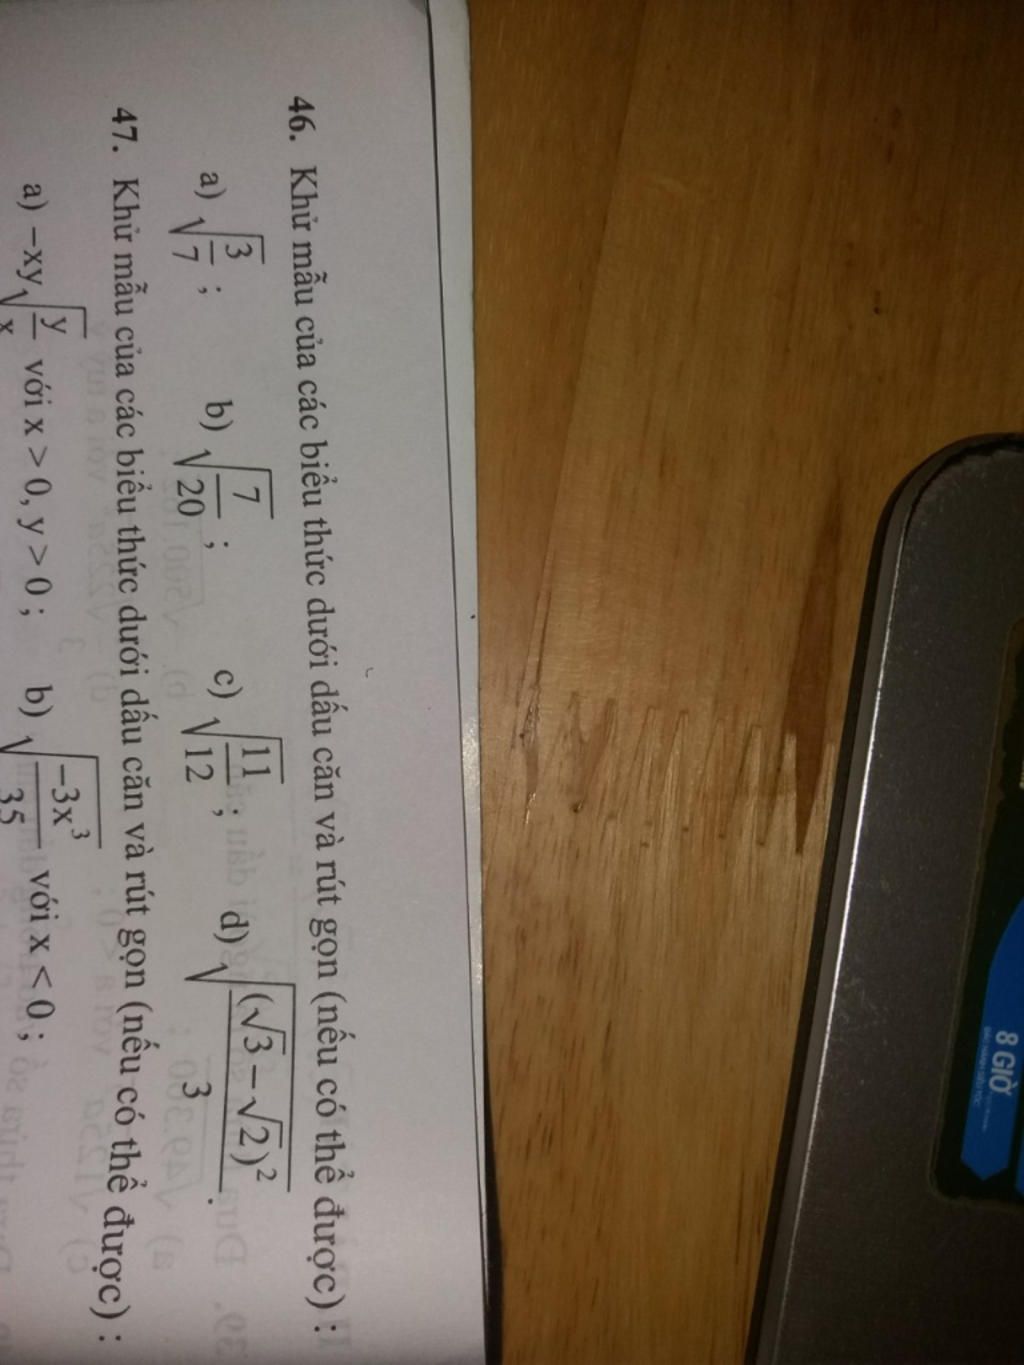 46. Khử mẫu của các biểu thức dưới dấu căn và rút gọn (nếu có thể được) :
a) √(3/7) ; b) √(7/20) ; c) √(11/12) ; d) √((√3 − √2)²/3) .
47. Khử mẫu của các biểu thức dưới dấu căn và rút gọn (nếu có thể được) :
a) −xy√(y/x) với x > 0, y > 0 ; b) √(−3x³/35) với x < 0 ;
8 GIỜ